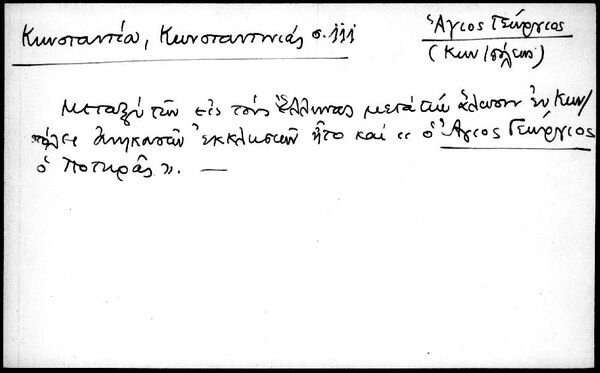 Κωνσταντία, Κωνσταντινιάς σ. iii
Ἅγιος Γεώργιος
(Κων/πόλεως)
Μεταξὺ τῶν εἰς τοὺς Ἕλληνας μετὰ τὴν ἅλωσιν ἐν Κων/
πόλει ἀνηκασῶν ἐκκλησιῶν ἦτο καὶ « ὁ Ἅγιος Γεώργιος
ὁ Ποτηρᾶς». —